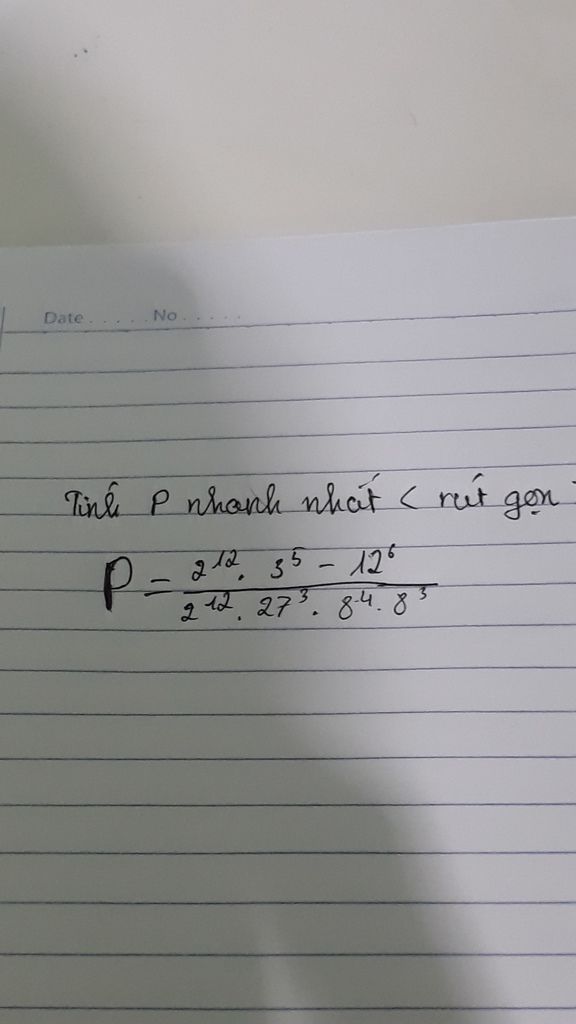 Date . . . . . No . . . . .
Tính P nhanh nhất < rút gọn >
P = \frac{2^{12} . 3^5 - 12^6}{2^{12} . 27^3 . 8^4 . 8^3}